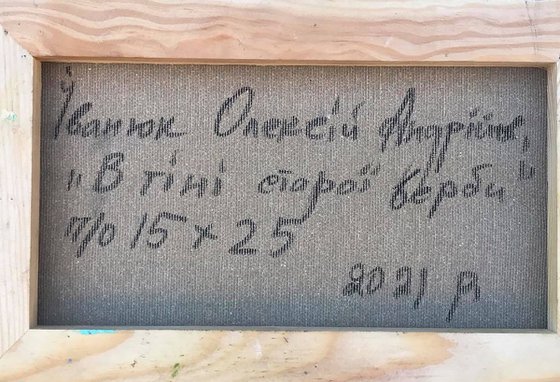 Іванюк Олексій Андрійович,
„В тіні старої верби"
п/о 15 x 25
2021 р